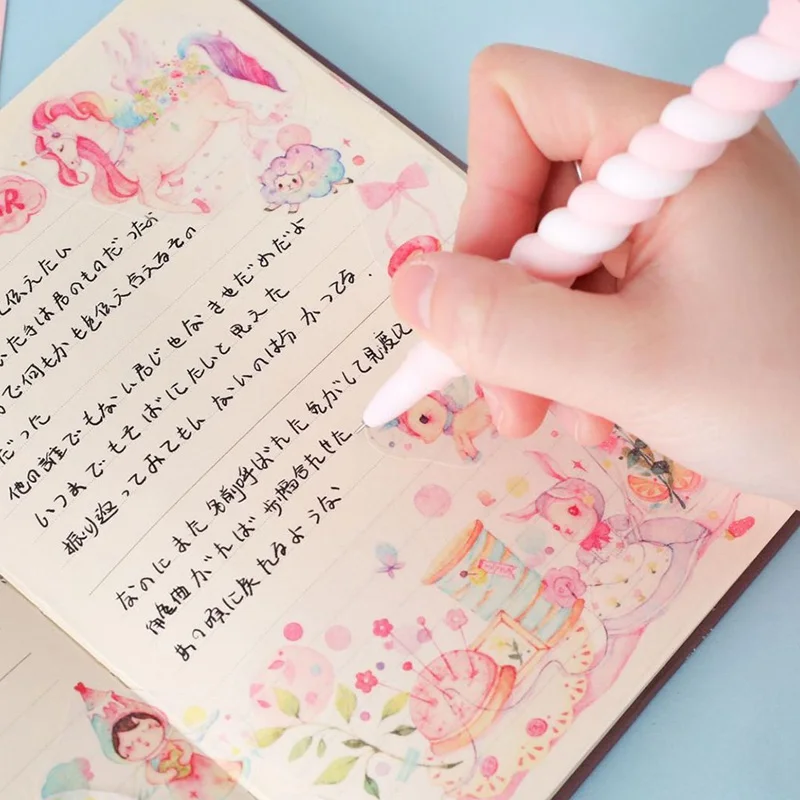 伝えたい
た手は君のものだったが
で何もかも色伝え合えるその
だった
他の誰でもない君じゃなきゃだめだよ
いつまでもそばにたいと思えた
振り返ってみてもん ないのは分かってる.
なのにまた名前呼ばれた気がして見渡
曲がれば 歩幅合わせた
あの頃に戻れるような